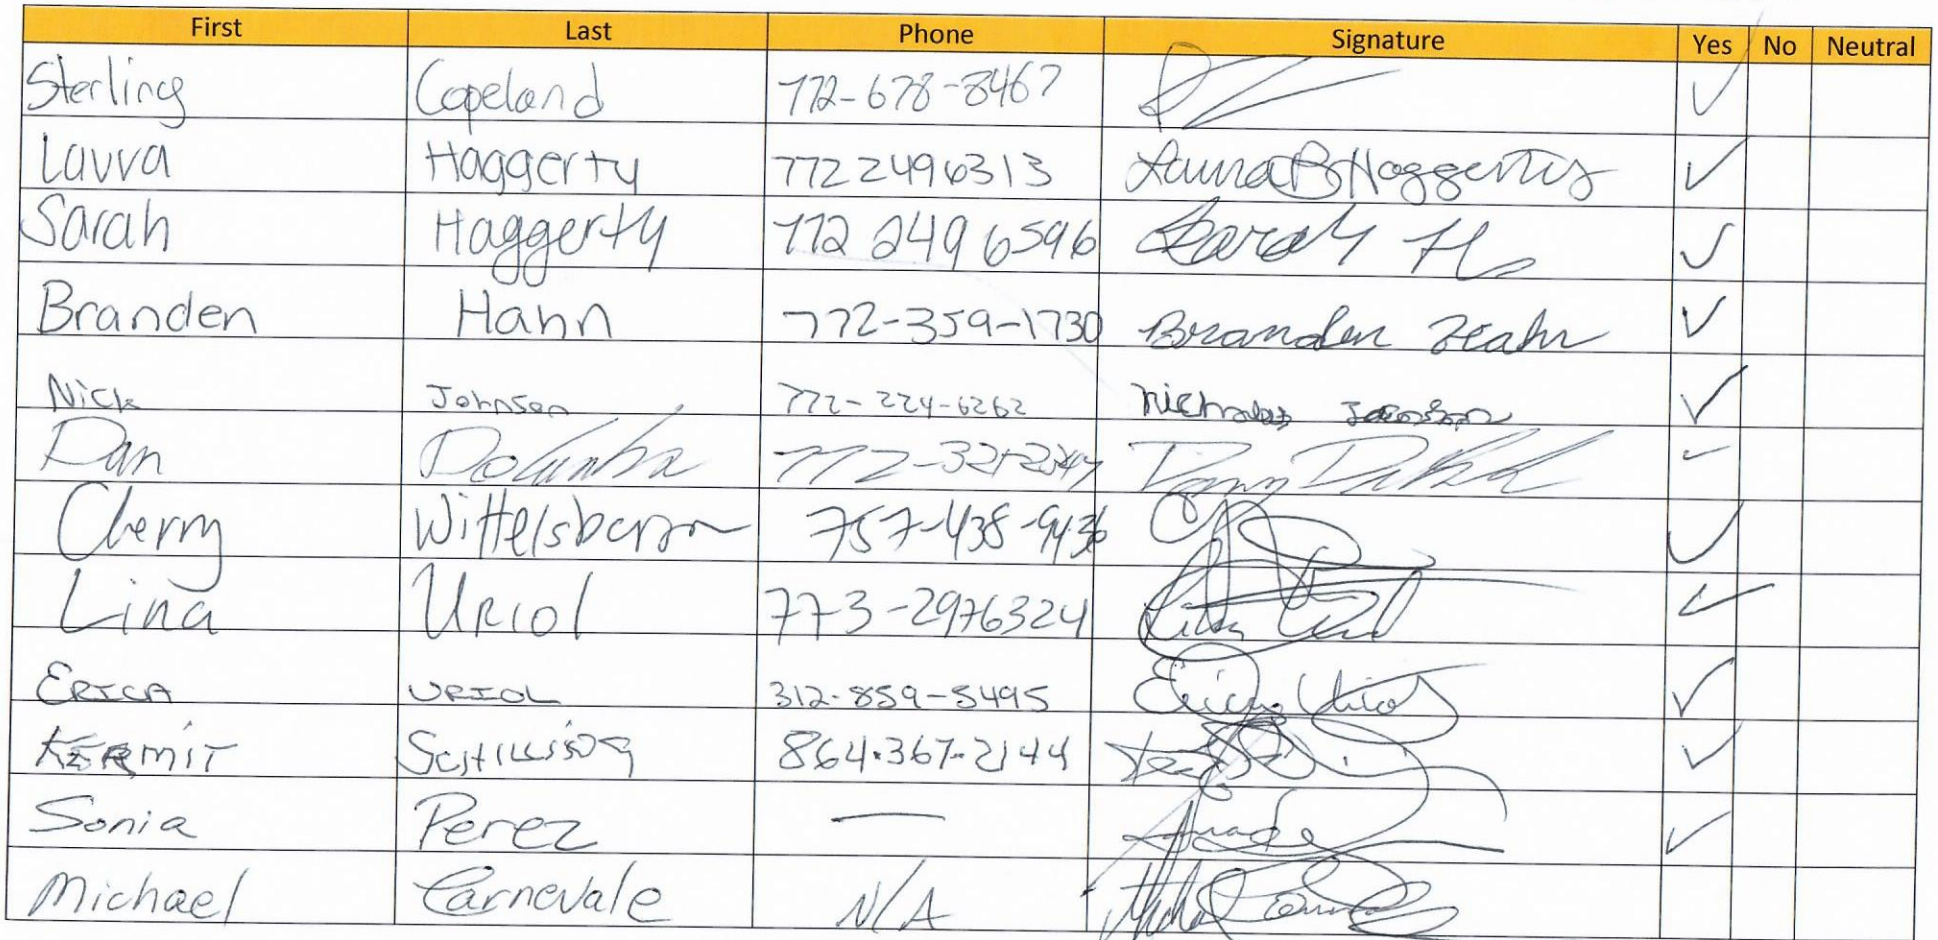 First Last Phone Signature Yes No Neutral
Sterling Copeland 772-678-8467 ✓
Laura Haggerty 7722496313 Laura B Haggerty ✓
Sarah Haggerty 772 249 6596 Sarah H ✓
Branden Hahn 772-359-1730 Branden Hahn ✓
Nick Johnson 772-224-6262 Nicholas Johnson ✓
Dan 772-321- ✓
Cherry 757-438-9436 ✓
Lina Uriol 773-2976324 ✓
ERICA URIOL 312-859-5495 Erica Uriol ✓
KERMIT 864.367.2144 ✓
Sonia Perez — ✓
Michael Carnevale N/A